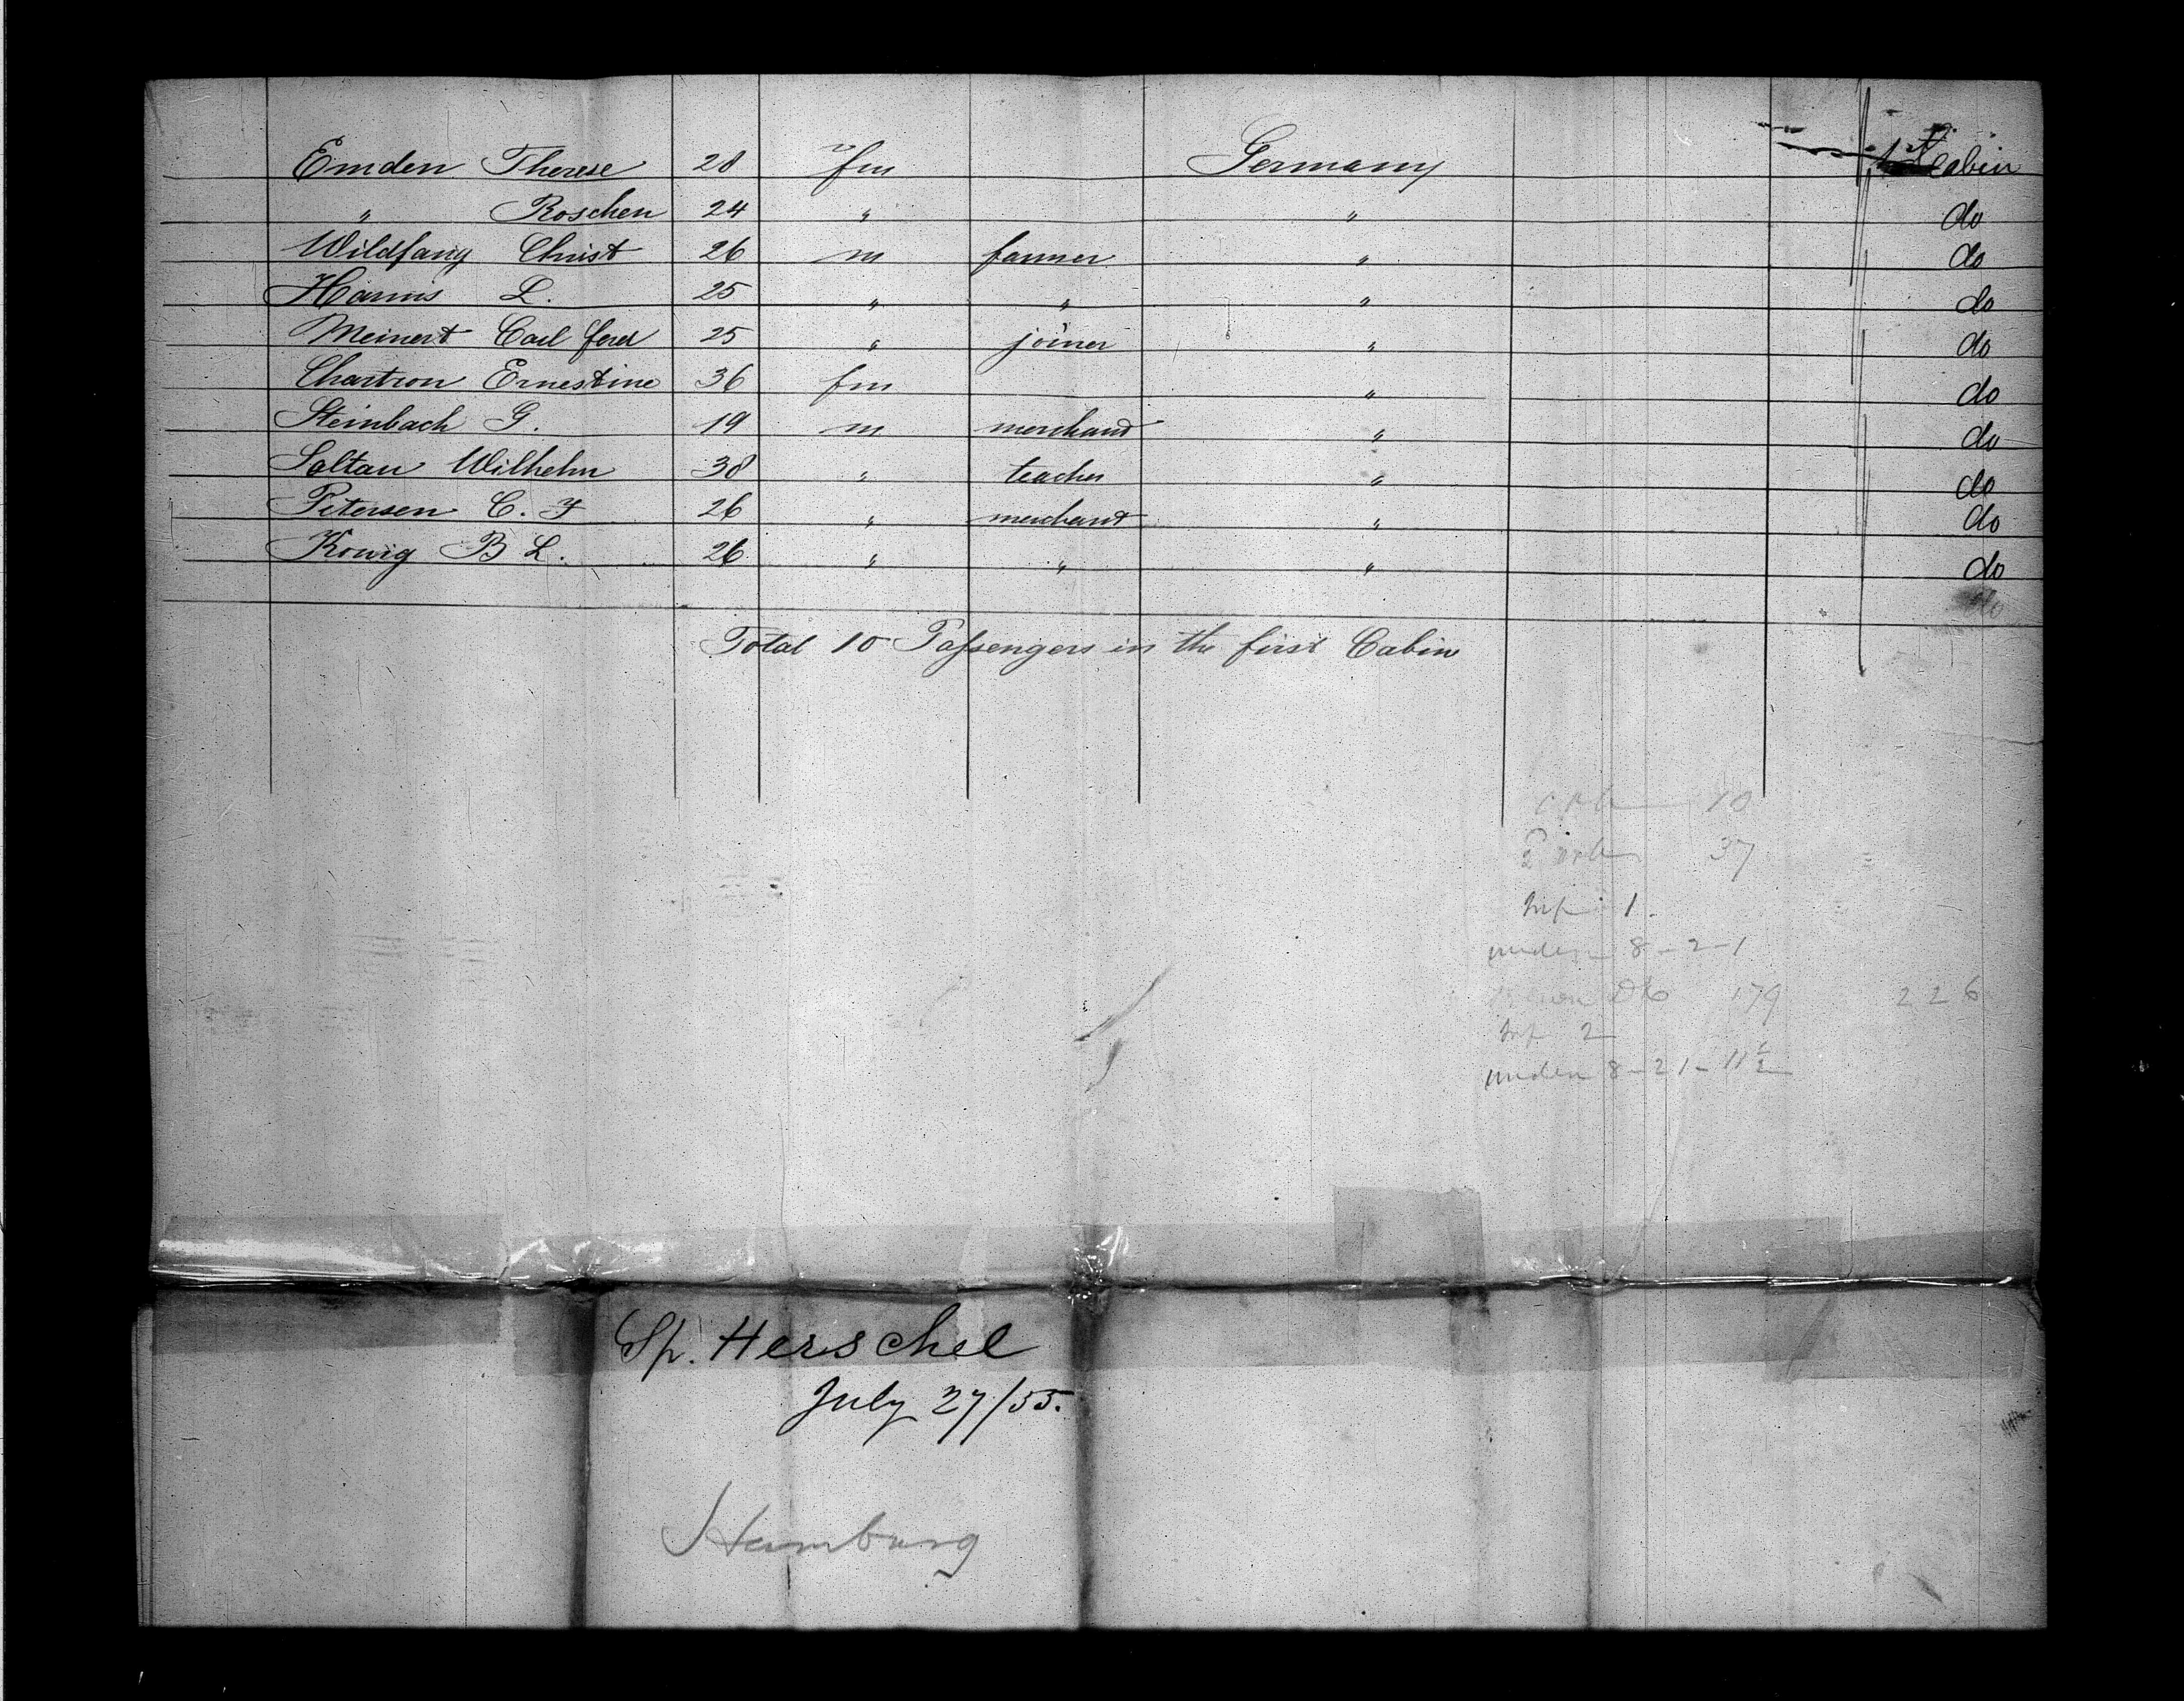 Emden Therese 28 fm Germany 1st Cabin
" Roschen 24 " " do
Wildfang Christ 26 m farmer " do
Harms L. 25 " " " do
Meinert Carl ferd 25 " joiner " do
Chartron Ernestine 36 fm " do
Steinbach G. 19 m merchand " do
Soltau Wilhelm 38 " teacher " do
Petersen C. F 26 " merchand " do
Konig B L. 26 " " " do
do
Total 10 Passengers in the first Cabin
10
37
Inf 1
under 8 - 2 - 1
179 226
Inf 2
under 8 - 21 - 11 1/2
Sp. Herschel
July 27/55.
Hamburg